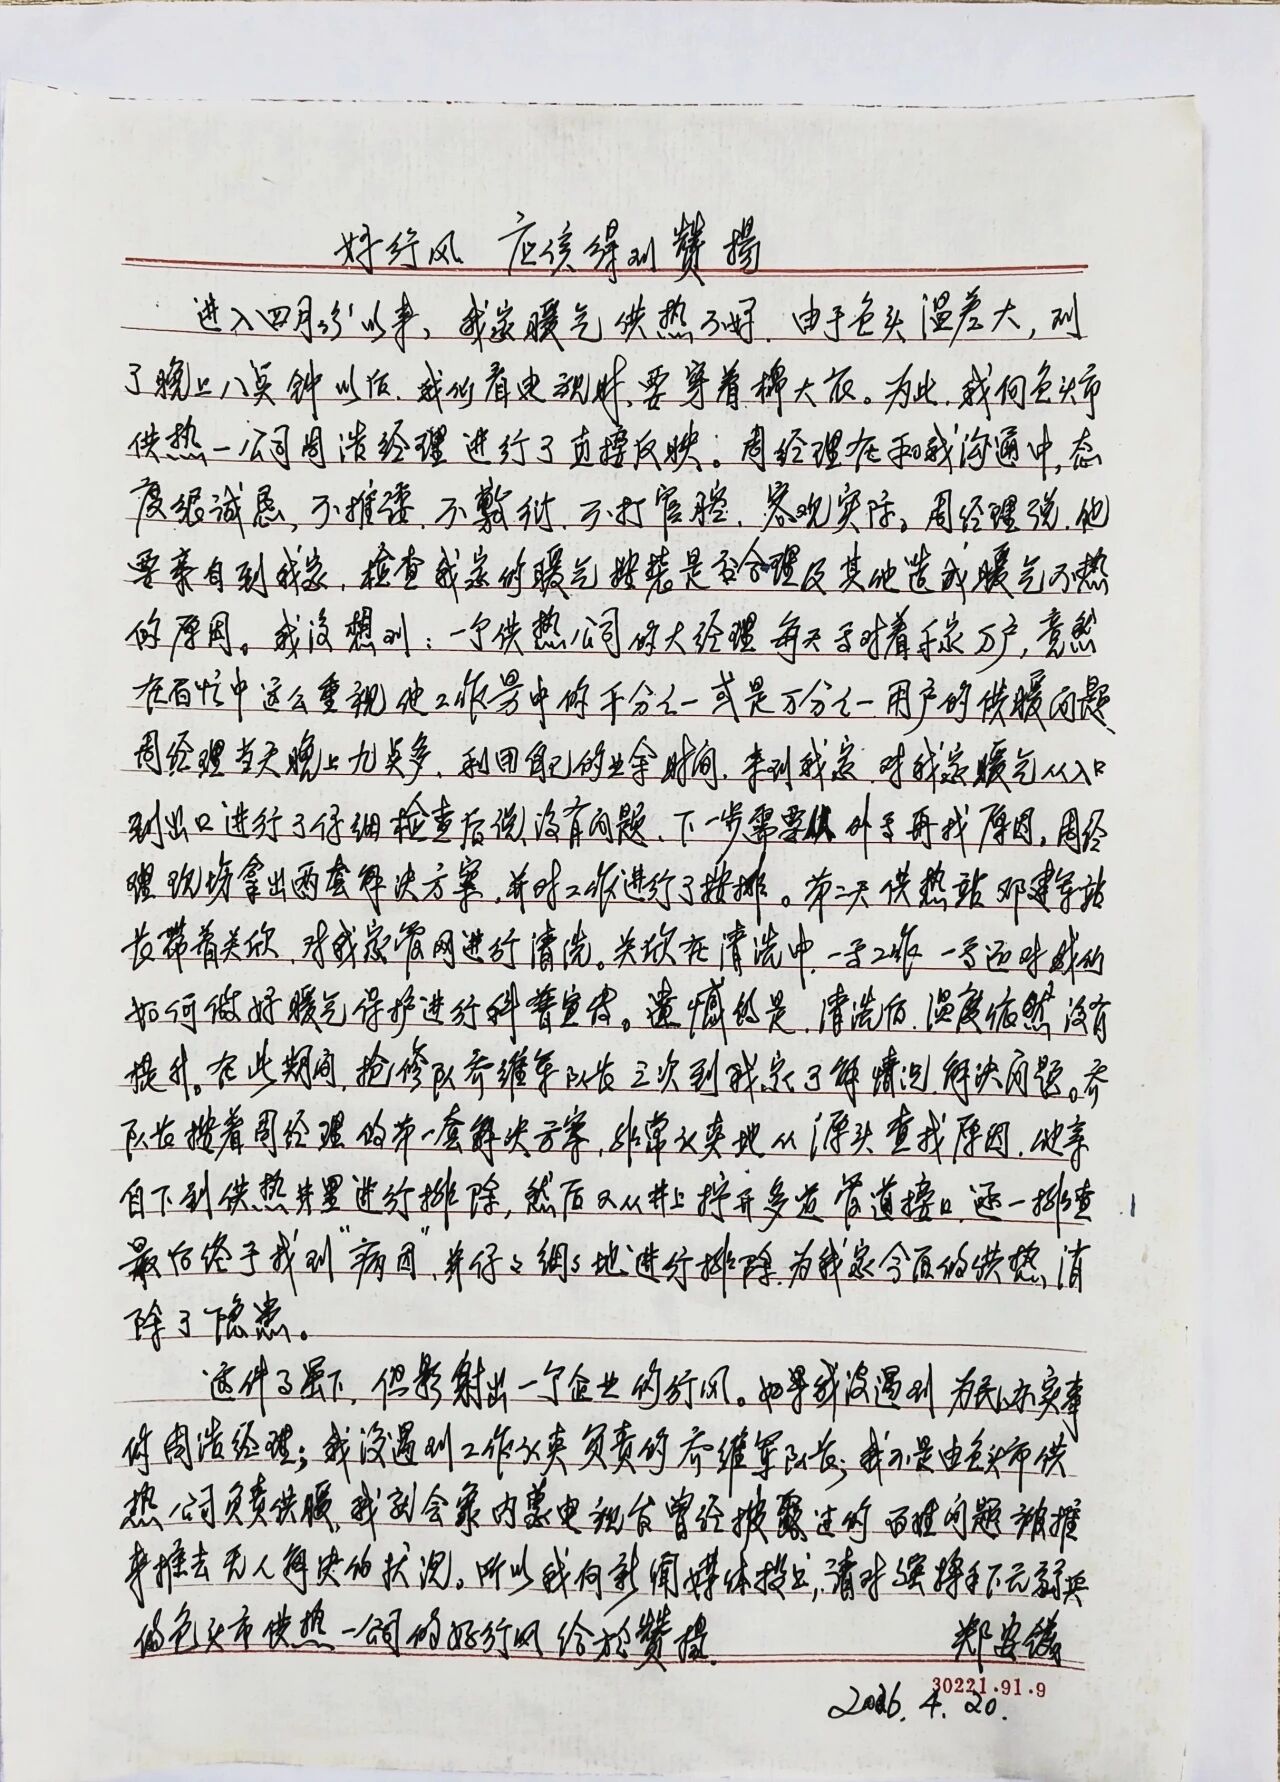 好行风 应该得到赞扬
进入四月份以来,我家暖气供热不好.由于包头温差大,到
了晚上八点钟以后.我们看电视时,要穿着棉大衣。为此.我向包头市
供热一公司周浩经理进行了直接反映。周经理在和我沟通中,态
度很诚恳,不推诿.不敷衍.不打官腔.客观实际。周经理说.他
要亲自到我家,检查我家的暖气按装是否合理及其他造成暖气不热
的原因。我没想到:一个供热公司的大经理每天面对着千家万户,竟然
在百忙中这么重视他工作量中的千分之一或是万分之一用户的供暖问题
周经理当天晚上九点多.利用自己的业余时间.来到我家.对我家暖气从入口
到出口进行了仔细检查后说没有问题.下一步需要从外面再找原因。周经
理现场拿出两套解决方案.并对工作进行了按排。第二天供热站邓建军站
长带着关欣.对我家管网进行清洗。关欣在清洗中.一面工作 一面还对我们
如何做好暖气保护进行科普宣传。遗憾的是.清洗后.温度依然没有
提升。在此期间.抢修队乔维军队长三次到我家了解情况.解决问题。乔
队长按着周经理的第一套解决方案.非常认真地从源头查找原因.他亲
自下到供热井里进行排除,然后又从井上拧开多道管道接口.逐一排查
最后终于找到"病因".并仔々细々地进行排除.为我家今后的供热,消
除了隐患。
这件事虽小.但影射出一个企业的行风。如果我没遇到为民办实事
的周浩经理;我没遇到工作认真负责的乔维军队长;我不是由包头市供
热公司负责供暖,我就会象内蒙电视台曾经披露过的百姓问题被推
来推去无人解决的状况。所以我向新闻媒体投书,请对强将手下无弱兵
的包头市供热一公司的好行风给于赞扬.
郑安
30221·91·9
2026.4.20.